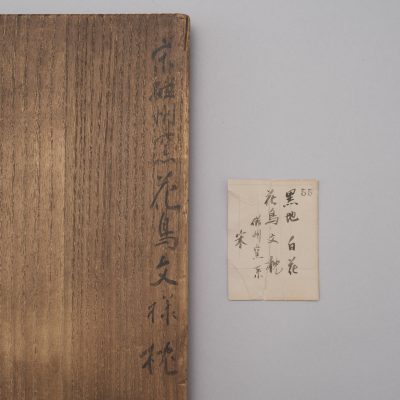 宋磁州窯花鳥文様枕
55
黒地 白花
花鳥文枕
磁州窯系
宋